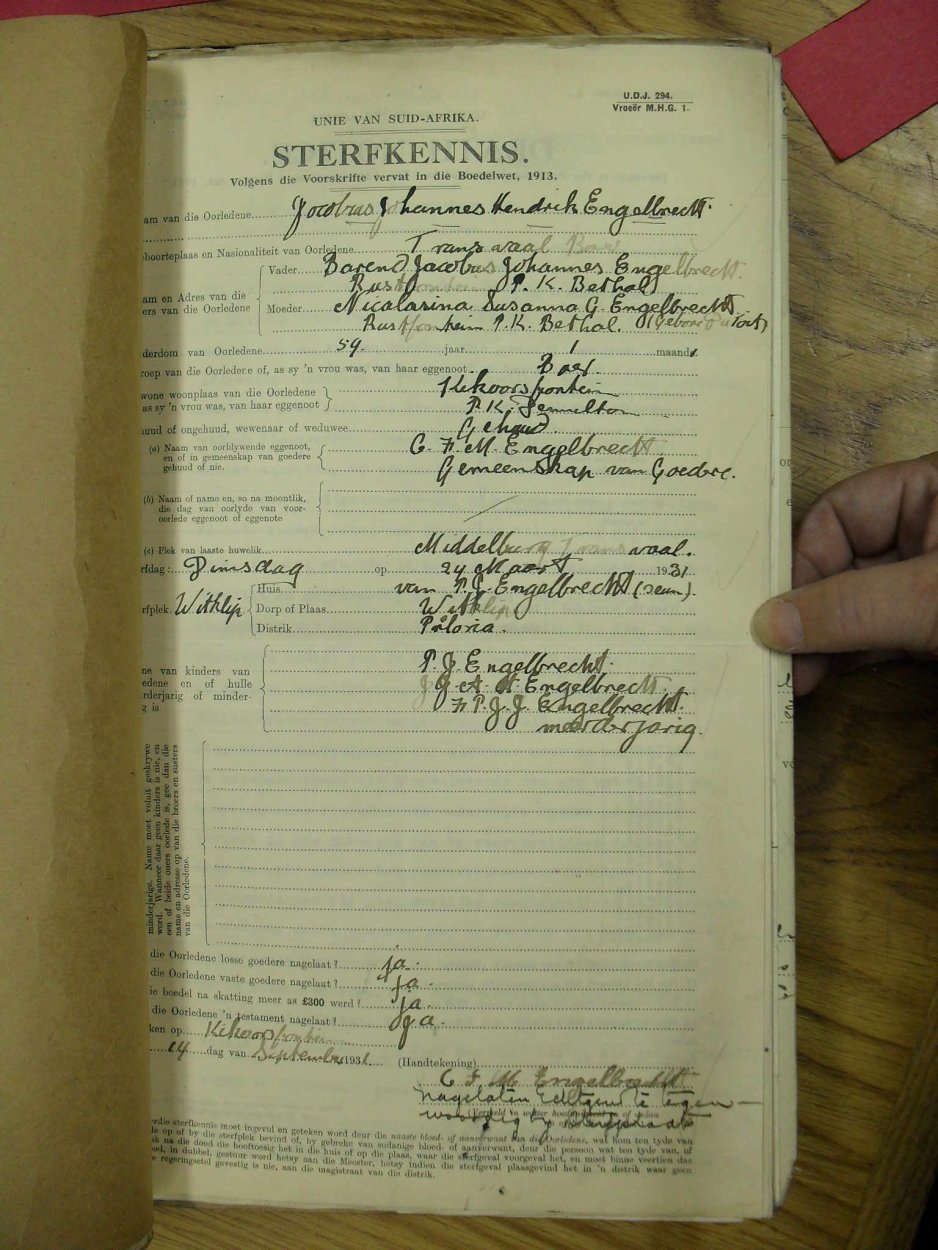 U.D.J. 294.
Vroeër M.H.G. 1.
UNIE VAN SUID-AFRIKA.
STERFKENNIS.
Volgens die Voorskrifte vervat in die Boedelwet, 1913.
am van die Oorledene Jocobus Johannes Hendrik Engelbrecht.
boorteplaas en Nasionaliteit van Oorledene Transvaal Boer
Vader Barend Jacobus Johannes Engelbrecht
Rustfontein P.K. Bethal
am en Adres van die
ers van die Oorledene
Moeder Nicalasina Susanna G. Engelbrecht
Rustfontein P.K. Bethal. (Gebore
derdom van Oorledene 59 jaar 1 maand
roep van die Oorledene of, as sy 'n vrou was, van haar eggenoot Boer.
wone woonplaas van die Oorledene
as sy 'n vrou was, van haar eggenoot
P.K.
huud of ongehuud, wewenaar of weduwee Gehuud
(a) Naam van oorblywende eggenoot,
en of in gemeenskap van goedere
gehuud of nie.
C. F. M. Engelbrecht
Gemeenskap van Goedre.
(b) Naam of name en, so na moontlik,
die dag van oorlyde van voor-
oorlede eggenoot of eggenote
(c) Plek van laaste huwelik Middelburg Transvaal.
rfdag: Dinsdag op 24 Maart 1931
rfplek. Witklip
Huis van P. J. Engelbrecht (seun).
Dorp of Plaas Witklip
Distrik Pritoria.
ne van kinders van
edene en of hulle
rderjarig of minder-
g is
P. J. Engelbrecht.
J G A H Engelbrecht.
F. P. J. J. Engelbrecht.
meerderjarig.
minderjarige. Name moet voluit geskrywe
word. Wanneer daar geen kinders is nie, en
een of beide ouers oorlede is, gee dan die
name en adresse op van die broers en susters
van die Oorledene.
die Oorledene losse goedere nagelaat? ja.
die Oorledene vaste goedere nagelaat? ja.
ie boedel na skatting meer as £300 werd? ja.
die Oorledene 'n testament nagelaat? Ja.
ken op
14 dag van September 1931.
(Handtekening)
C F M Engelbrecht
nagelaten
rdie sterfkennis moet ingevul en geteken word deur die naaste bloed- of aanverwant van die Oorledene, wat hom ten tyde van
le op of by die sterfplek bevind of, by gebreke van sodanige bloed- of aanverwant, deur die persoon wat ten tyde van, of
ik na die dood die hooftoesig het in die huis of op die plaas, waar die sterfgeval voorgeval het, en moet binne veertien dae
ood, in dubbel, gestuur word hetsy aan die Meester, hetsy indien die sterfgeval plaasgevind het in 'n distrik waar geen
e regeringsetel gevestig is nie, aan die magistraat van die distrik.